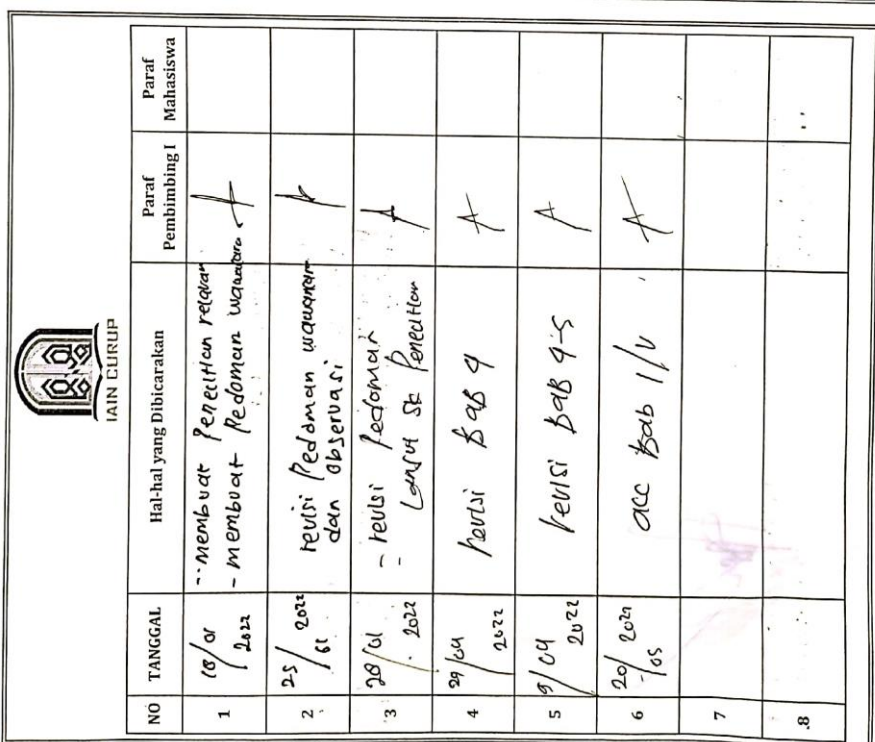 IAIN CURUP
NO TANGGAL Hal-hal yang Dibicarakan Paraf Pembimbing I Paraf Mahasiswa
1 18/01 2022 - membuat Penelitian relevan
- membuat Pedoman wawancara
2 25/01 2022 revisi Pedoman wawancara
dan observasi
3 28/01 2022 - revisi Pedoman
- Lanjut SK Penelitian
4 29/04 2022 revisi BAB 4
5 9/04 2022 revisi BAB 4-5
6 20/05 acc Bab I/V
7
8